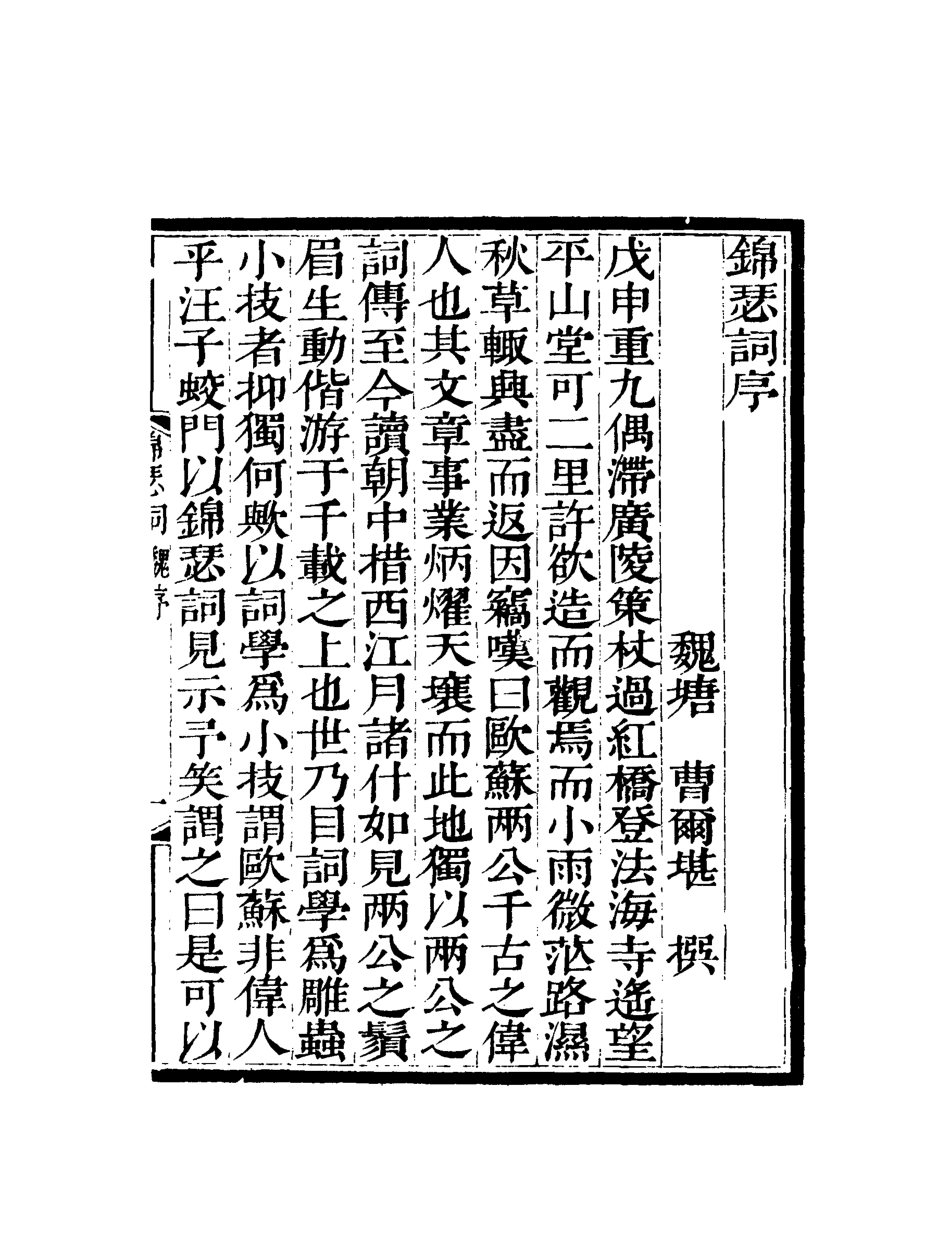 錦瑟詞序
魏塘　曹爾堪　撰
戊申重九偶滯廣陵策杖過紅橋登法海寺遙望
平山堂可二里許欲造而觀焉而小雨微茫路濕
秋草輙興盡而返因竊嘆曰歐蘇兩公千古之偉
人也其文章事業炳燿天壤而此地獨以兩公之
詞傳至今讀朝中措西江月諸什如見兩公之鬚
眉生動偕游于千載之上也世乃目詞學爲雕蟲
小技者抑獨何歟以詞學爲小技謂歐蘇非偉人
乎汪子蛟門以錦瑟詞見示予笑謂之曰是可以
錦瑟詞 魏序
一